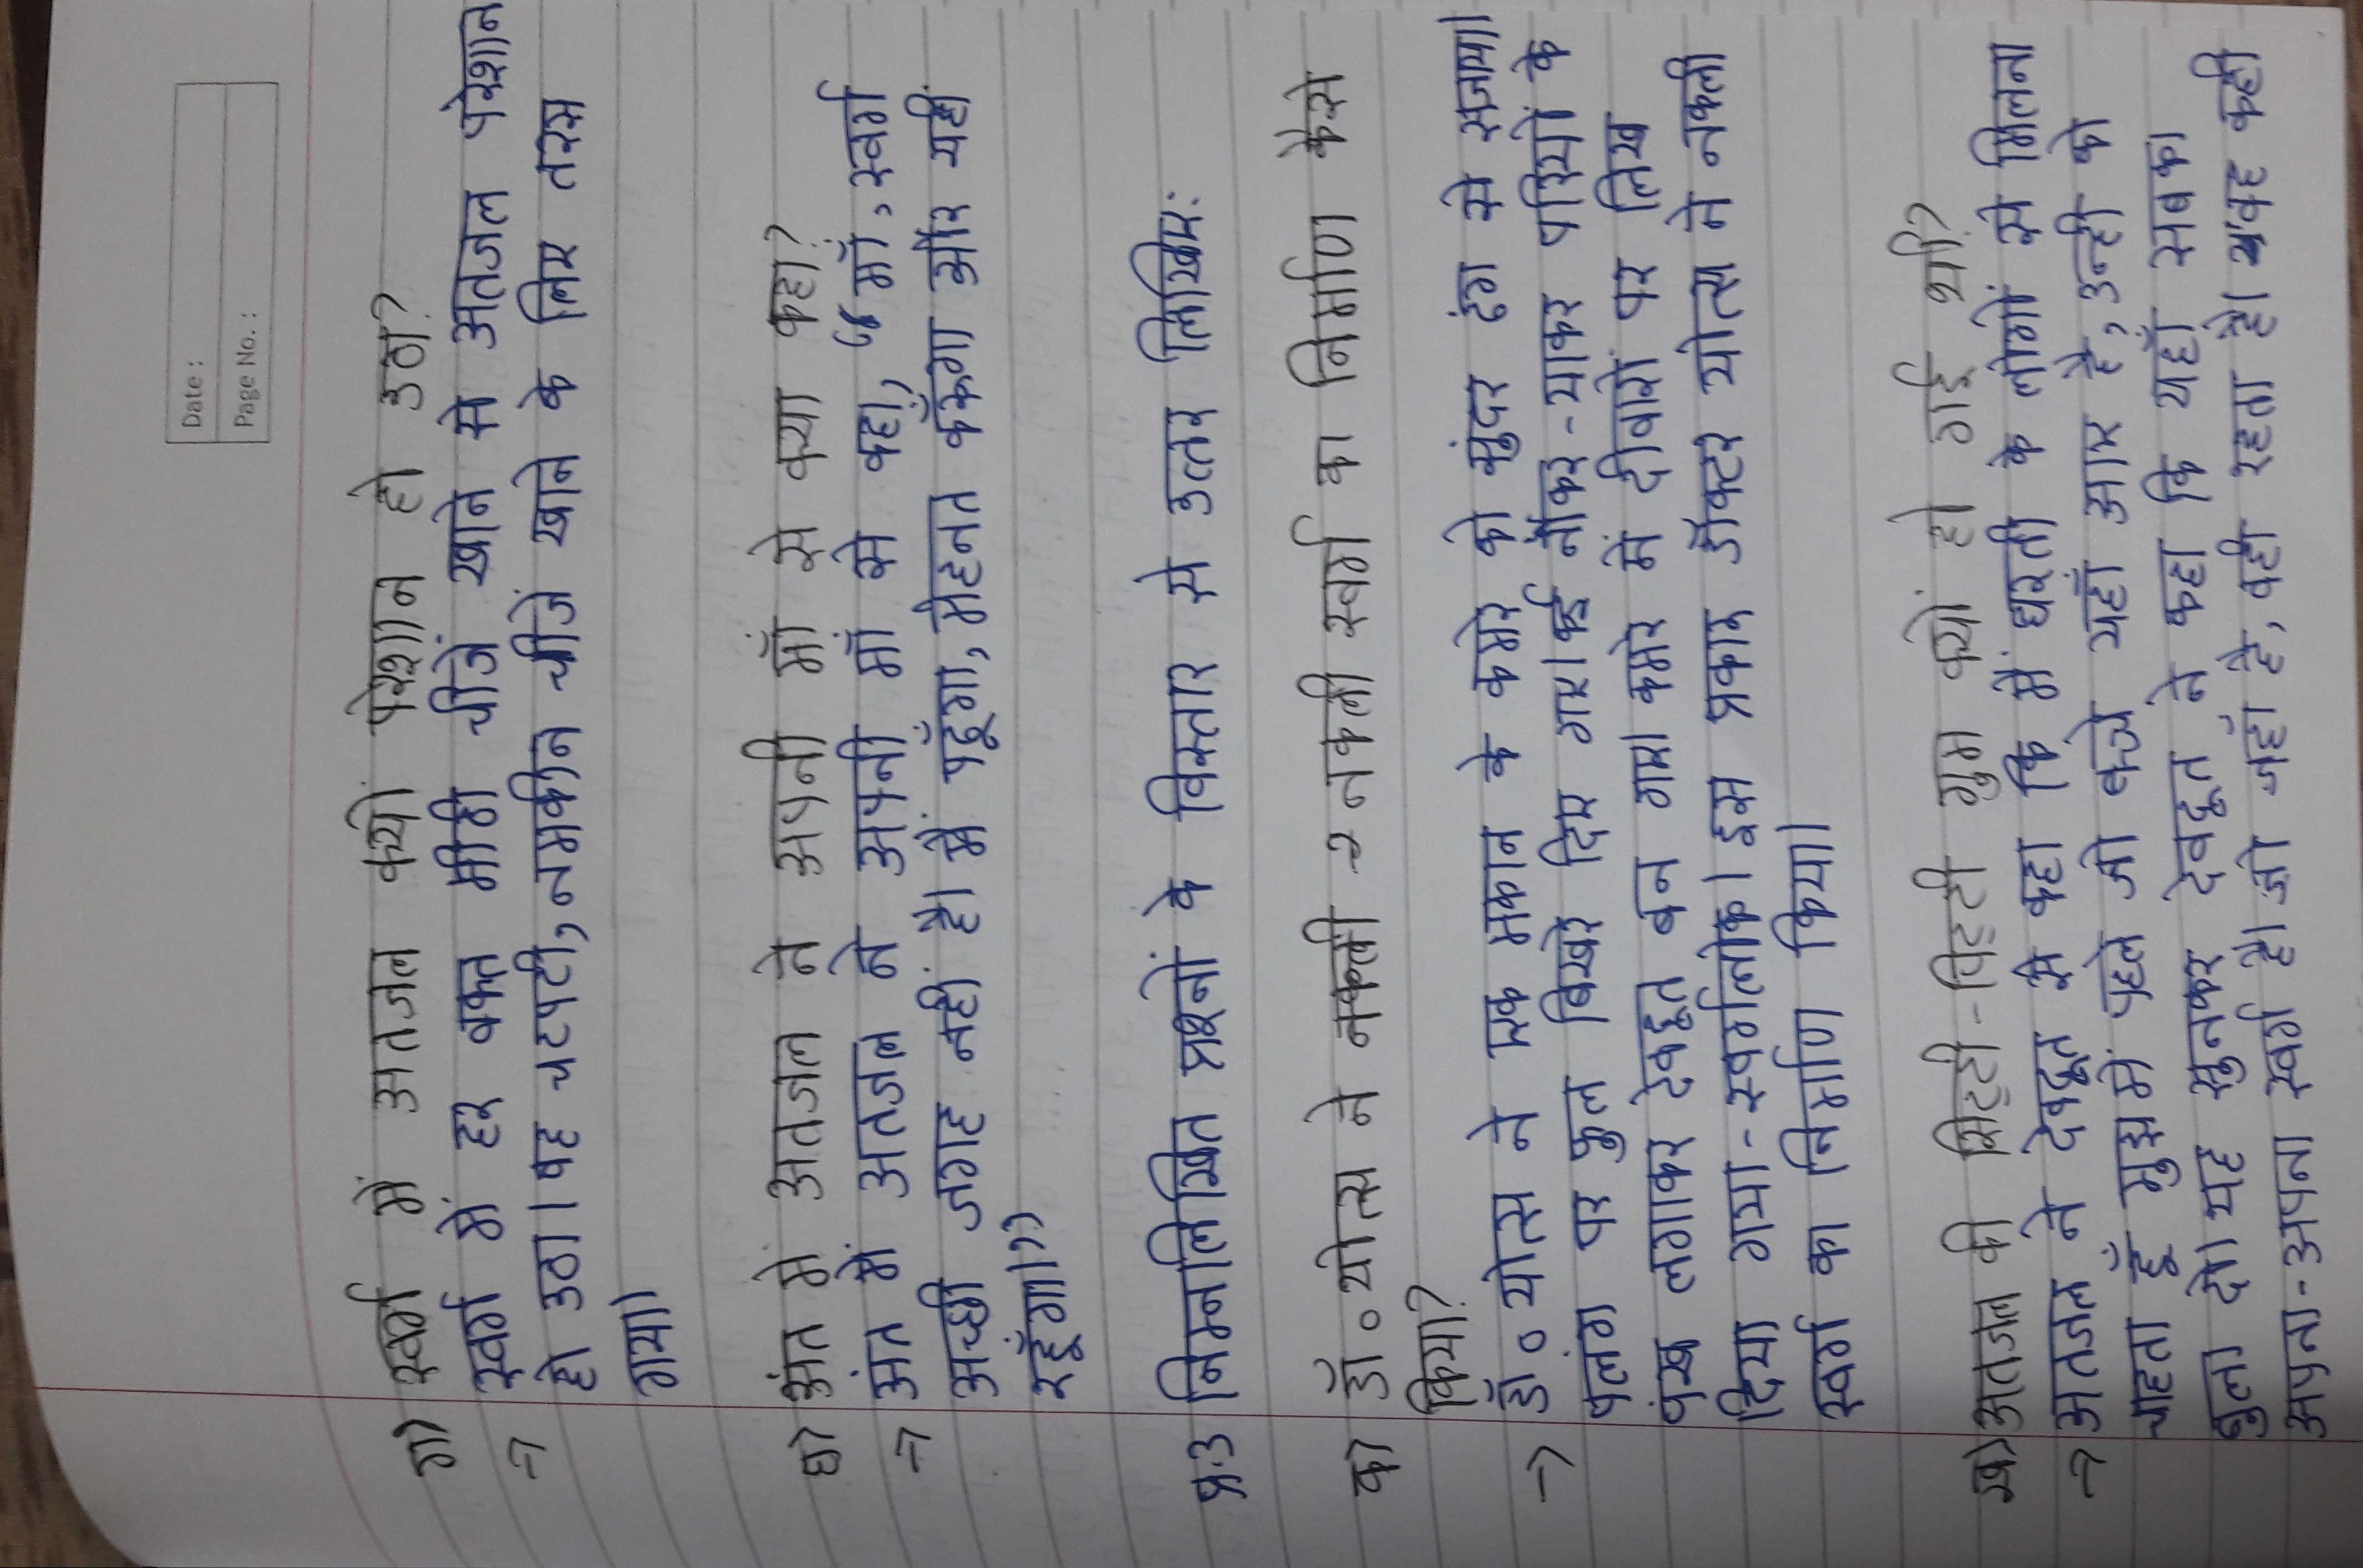 Date :
Page No. :
ग) स्वर्ग में अतजल क्यों परेशान हो उठा?
→ स्वर्ग में हर वक्त मीठी चीजें खाने से अतजल परेशान
हो उठा। वह चटपटी, नमकीन चीजें खाने के लिए तरस
गया।
घ) अंत में अतजल ने अपनी माँ से क्या कहा?
→ अंत में अतजल ने अपनी माँ से कहा, "माँ, स्वर्ग
अच्छी जगह नहीं है। मैं पढूँगा, मेहनत करूँगा और यहीं
रहूँगा।"
प्र.3 निम्नलिखित प्रश्नों के विस्तार से उत्तर लिखिए:
क) डॉ० योत्स ने नकली नकली स्वर्ग का निर्माण कैसे
किया?
→ डॉ० योत्स ने एक मकान के कमरे को सुंदर ढंग से सजाया।
पलंग पर फुल बिखेर दिए गए। कई नौकर-चाकर परियों के
पंख लगाकर देवदूत बन गए। कमरे में दीवारों पर लिख
दिया गया - स्वर्गलोक। इस प्रकार डॉक्टर योत्स ने नकली
स्वर्ग का निर्माण किया।
ख) अतजल की सिट्टी-पिट्टी गुम क्यों हो गई थी?
→ अतजल ने देवदूत से कहा कि मैं धरती के लोगों से मिलना
चाहता हूँ मुझमें पहले जो बच्चे यहाँ आए है, उन्ही को
बुला दो। यह सुनकर देवदूत ने कहा कि यहाँ सबका
अपना-अपना स्वर्ग है। जो जहाँ है, वही रहता है। वह कही